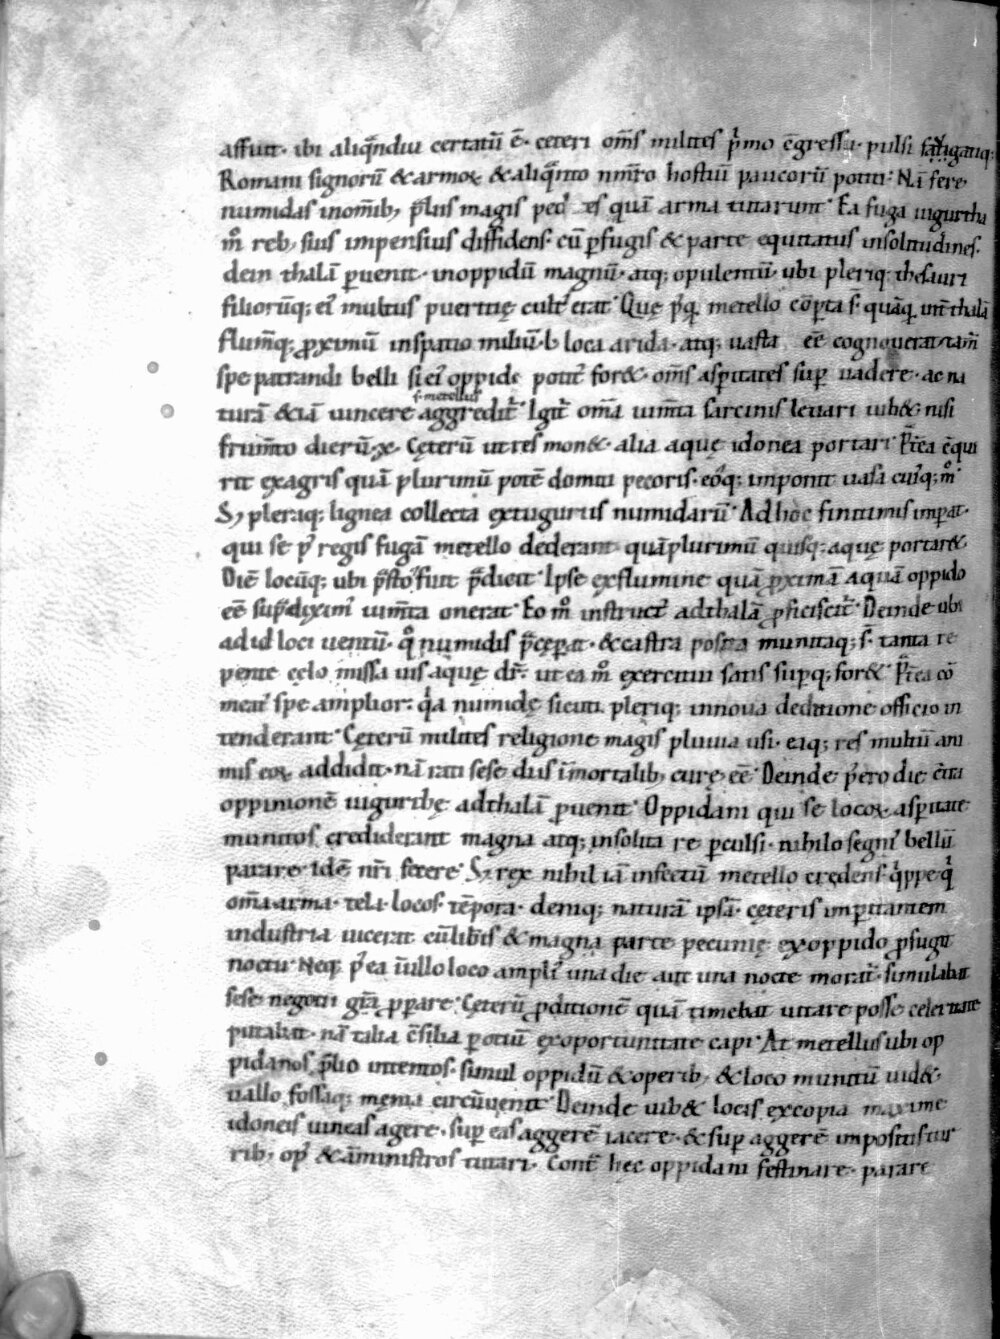 affuit. ibi aliqͣndiu certatū ē. ceteri om̄s milites p̓mo ꝯgressu. pulsi fugatiq;
Romani signorū & armoꝝ & aliqͣnto nūro hostiū paucorū potiti. Nā fere
numidas inomīb; p̄lius magis pedes quā arma tutata sunt. Ea fuga iugurtha
mͦ reb; suis impensius diffidens. cū ꝑfugis & parte equitatus insolitudines.
dein thalā ꝑuenit. inoppidū magnū. atq; opulentū. ubi pleriq; thesauri
filiorūq; ei᷒ multus pueritię cult᷒ erat. Quę p᷒q̄ metello cōꝑta s̄. quāq̄ int̄ thalā
flumēq; ꝓximū inspatio miliū. l. loca arida. atq; uasta eē cognouerat. tam̄
spe patrandi belli si ei᷒ oppido potit᷒ for&. om̄s asꝑitates suꝑ uadere. ac na
turā &iā uincere aggredit᷑. Igit᷑ om̄a iumīta sarcinis leuari iub& nisi
s. metellus
frumīto dierū. x. Cęterū utres mon&. alia aquę idonea portari. P̄t̄ea ꝯqui
rit exagris quā plurimū potē domiti pecoris. eoq; imponit uasa cui᷒q; mͦ
S; pleraq; lignea collecta extuguriis numidarū. Adhoc finitimis imꝑat.
qui se p᷒ regis fugā metello dederant quāplurimū quisq; aquę portar&.
Diē locūq; ubi p̄sto fuit p̄dicit. Ipse exflumine quā ꝓximā aquā oppido
eē sup̄diximᷤ iumīta onerat. Eo mͦ instruct᷒ adthalā ꝓficiscit᷑. Deinde ubi
ad id loci uentū. qͦ numidis p̄cęꝑat. & castra posita munitaq; s̄. tanta re
pente cęlo missa uis aquę dr̄. ut ea mͦ exercitui satis suꝑq; for&. P̄t̄ea cō
meat᷒ spe amplior. qͥa numidę sicuti pleriq; innoua deditione officio in
tenderant. Cęterū milites religione magis pluuia usi. eaq; res multū ani
mis eoꝝ addidit. nā rati sese diis īmortalib; curę eē. Deinde p᷒tero die ꝯtra
oppinionē iugurthę adthalā ꝑuenit. Oppidani qui se locoꝝ asꝑitate
munitos crediderant magna atq; insolita re ꝑculsi. nihilo segni᷒ bellū
parare. Idē nr̄i fecere. S; rex nihil iā infectū metello credens. qͥppe qͥ
om̄a arma. tela. locos. tēpora. deniq; naturā ipsā. cęteris imꝑitantem
industria uicerat cūlib̄is & magna parte pecunię exoppido ꝓfugit
noctu. Neq᷒ p᷒ ea ūllo loco ampli᷒ una die aut una nocte morat᷒. simulabat
sese negotii gr̄a ꝓꝑare. Cęterū ꝓditionē quā timebat uitare posse celeritate
putabat. nā talia ꝯsilia ꝑ otiū exoportunitate capi. At metellus ubi op
pidanos p̄lio intentos. simul oppidū & operib; & loco munitū uid&.
uallo fossaq; męnia circūuenit. Deinde iub& locis excopia maxime
idoneis uineas agere. suꝑ eas aggerē iacere. & suꝑ aggerē impositis tur
rib; op᷒ & aministros tutari. Cont̄ hęc oppidani festinare. parare